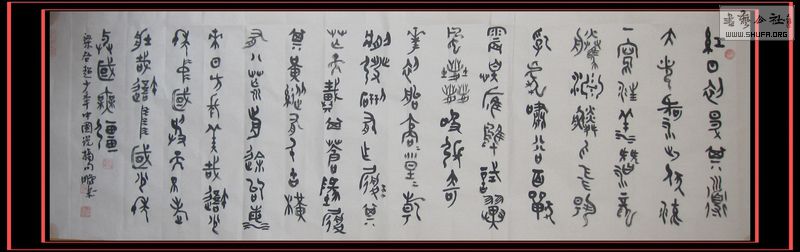 紅日初升其道
大光河出伏流
一瀉汪洋潛龍
騰淵鱗爪飛揚
乳虎嘯谷百獸
震惶鷹隼試翼
風塵吸張奇
花初胎矞矞皇皇乾
將發硎有作其
芒天戴其蒼地履
其黃縱有千古橫
有八荒前途似海
來日方長美哉我少
年中國與天不老
壯哉我中國少年
與國無疆
梁啓超少年中國說摘句
WWW.SHUFA.ORG